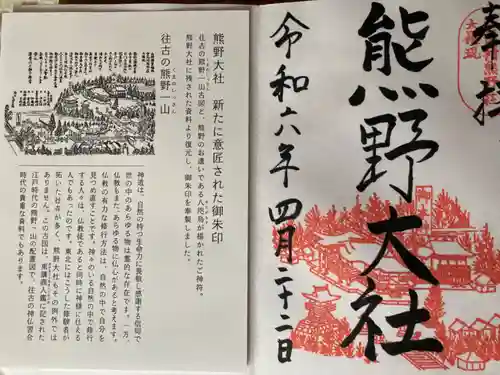 熊野大社 新たに意匠された御朱印
往古の熊野一山古図と、熊野のお遣いである八咫烏が描かれたご神符。
熊野大社に残された資料より復元し、御朱印を奉製しました。
往古の熊野一山
くまのいっさん
神道は、自然の持つ生命力に畏敬し感謝する信仰で
世の中のあらゆる物は霊的な存在です。一方、
仏教もまた、あらゆる物に仏心があると考えます。
仏教の有力な修行方法は、自然の中で自分を
見つめ直すことです。神々のいる自然の中で修行
する人々は、仏教徒であると同時に神様に仕える
人でもあったのです。東北にはこうした修験者が
拓いた社寺が多く、熊野大社もその例外では
ありません。この古図は、
江戸時代の熊野一山の配置図で、往古の神仏習合
時代の貴重な資料でもあります。
奉拝
熊野大社
令和六年四月二十二日